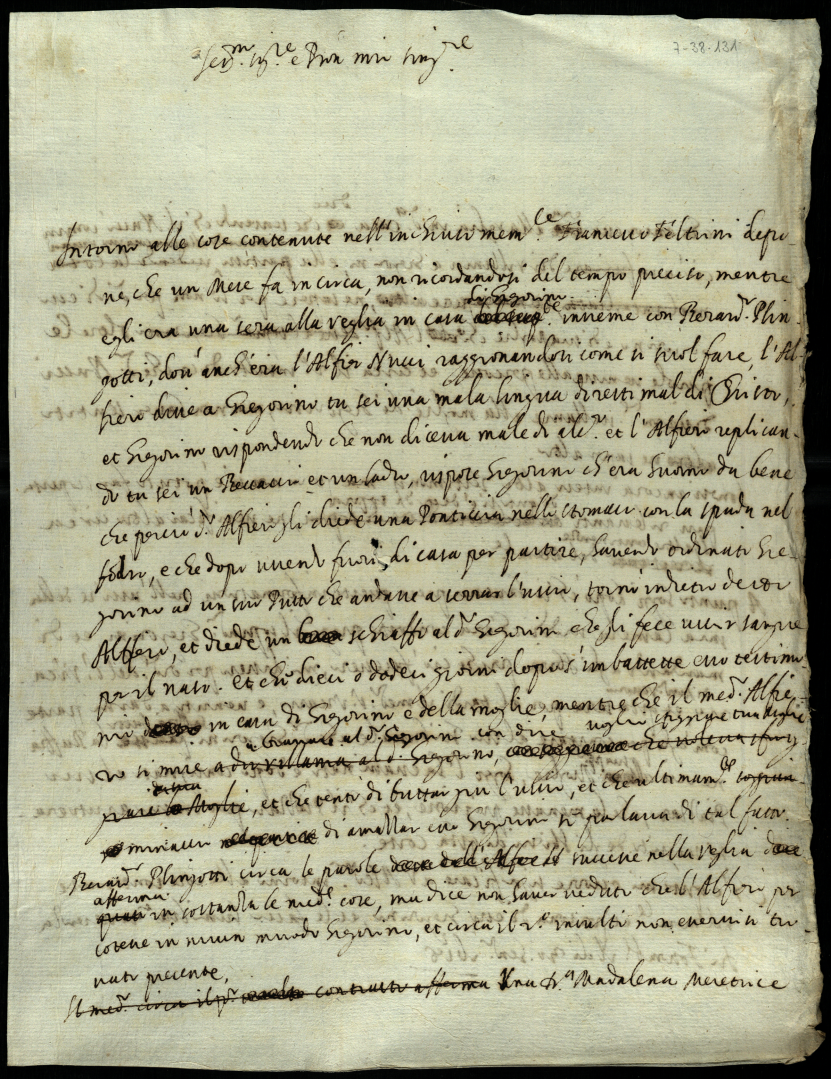 7-38-131
Ser.mo Sig.re e Pron mio sing.re
Intorno alle cose contenute nell'inchiuso mem.le Francesco Feltrini depo-
ne, che un Mese fa in circa, non ricordandosi del tempo preciso, mentre
di Gregorino
egli era una sera alla veglia in casa insieme con Berard.o Plin-
gotti, dou'anch'era l'Alfier Nucci raggionandosi come si suol fare, l'Al-
fiero disse a Gregorino tu sei una mala lingua diresti mal di Christo,
et Gregorino rispondendo che non diceua male di alc.o et l'Alfiero replican-
do tu sei un Beccaccio et un ladro, rispose Gregorino ch'era huomo da bene
che perciò d.o Alfiero gli diede una Ponticcia nello stomaco con la spada nel
fodro, e che dopo uscendo fuori di casa per partire, hauendo ordinato Gre-
gorino ad un suo Putto che andasse a serrar l'uscio, tornò indietro detto
Alfiero, et diede un schiaffo al d.o Gregorino che gli fece uscir sangue
per il naso. et che dieci o dodeci giorni dopo s'imbattette esso testimo-
nio in casa di Gregorino e della moglie, mentre che il med.o Alfie-
a brauare al d.o Gregorino con dire voglio sfrisare tua moglie
ro si mise, a dir villania al d.o Gregorino, che voleua sfri-
giare la Moglie, et che tentò di buttar giù l'uscio, et che ultimam.te
minacciò di amazzar esso Gregorino si parlaua di tal fatto.
Berard.o Plingotti circa le parole dell'Alfiero successe nella veglia
afferma
quasi in sostanza le med.e cose, ma dice non hauer veduto che l'Alfiero per
cotesse in nissun modo Gregorino, et circa il 2.o insulto non essersi tro-
uato presente,
Il med.o circa il p.o contrasto afferma Una D.a Madalena Meretrice